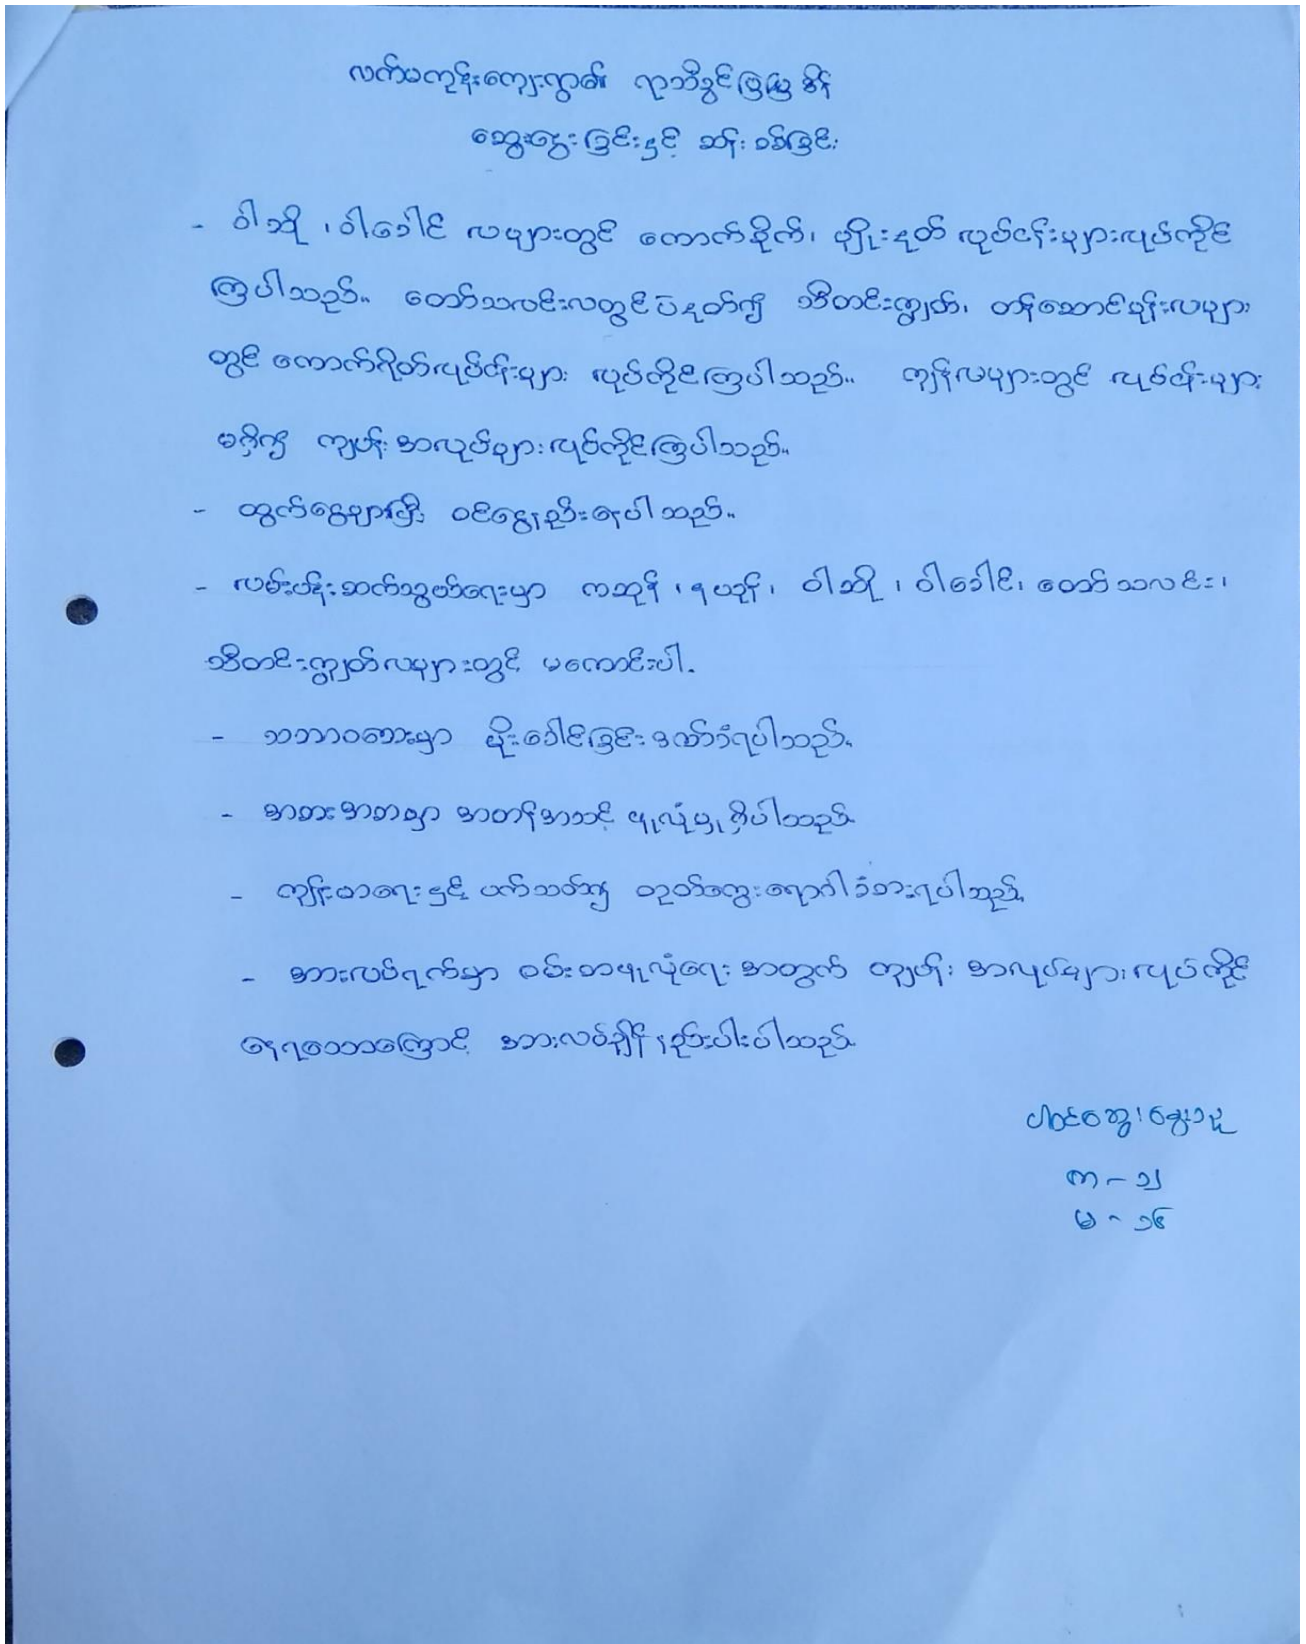 လက်မကုန်းကျေးရွာ၏ ရာသီခွင်ပြမြေစိန်
ဆွေးနွေးခြင်းနှင့် ဆန်းစစ်ခြင်း
- ဝါဆို ၊ ဝါခေါင် လများတွင် ကောက်စိုက်၊ မျိုးနုတ် လုပ်ငန်းများလုပ်ကိုင်
ကြပါသည်။ တော်သလင်းလတွင် ပဲနုတ်၍ သီတင်းကျွတ်၊ တန်ဆောင်မုန်းလများ
တွင် ကောက်ရိတ်လုပ်ငန်းများ လုပ်ကိုင်ကြပါသည်။ ကျန်လများတွင် လုပ်ငန်းများ
မရှိ၍ ကျပန်းအလုပ်များ လုပ်ကိုင်ကြပါသည်။
- ထွက်ငွေများပြီး ဝင်ငွေနည်းနေပါသည်။
- လမ်းပန်းဆက်သွယ်ရေးမှာ ကဆုန် ၊ နယုန် ၊ ဝါဆို ၊ ဝါခေါင်၊ တော်သလင်း ၊
သီတင်းကျွတ်လများတွင် မကောင်းပါ.
- သဘာဝဘေးမှာ မိုးခေါင်ခြင်းဒဏ်ခံရပါသည်.
- အစားအစာမှာ အတန်အသင့် ဖူလုံမှု ရှိပါသည်.
- ကျန်းမာရေးနှင့် ပတ်သတ်၍ တုတ်ကွေးရောဂါ ခံစားရပါသည်.
- အားလပ်ရက်မှာ ဝမ်းစာဖူလုံရေး အတွက် ကျပန်း အလုပ်များ လုပ်ကိုင်
နေရသောကြောင့် အားလပ်ချိန် နည်းပါးပါသည်.
ပါဝင်ဆွေးနွေးသူ
ကျ - ၁၂
မ - ၁၆